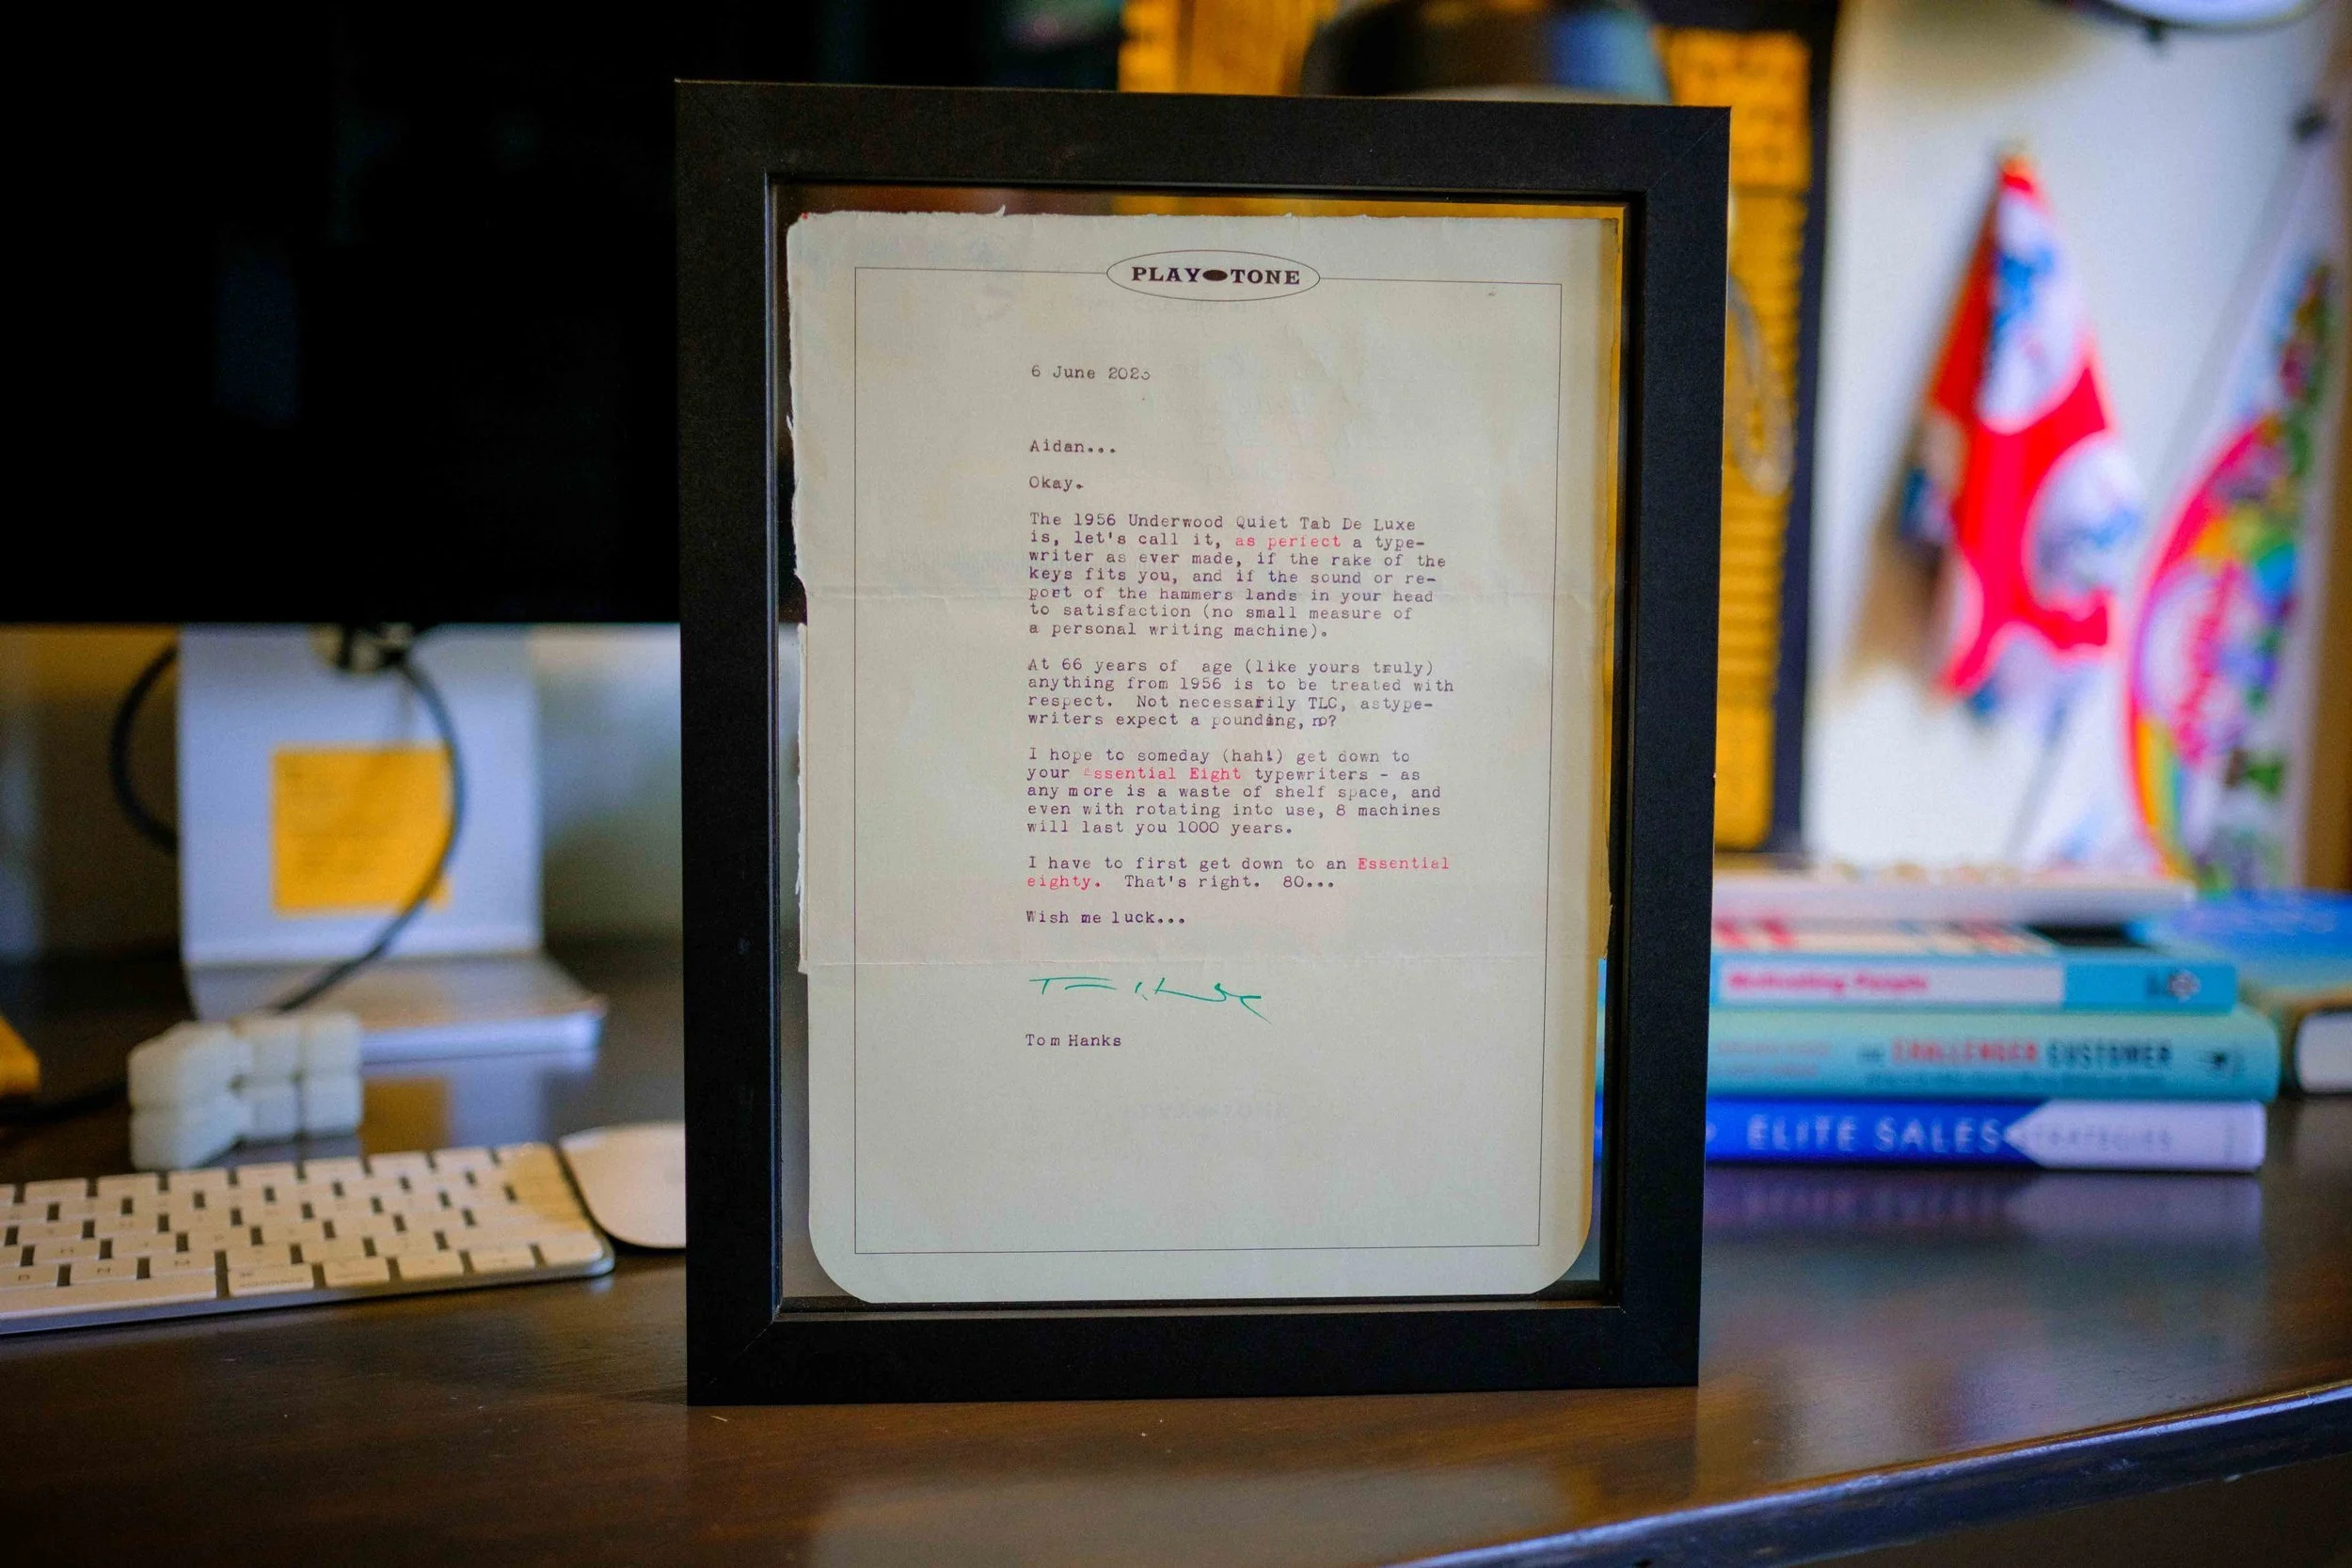 PLAY TONE
6 June 2023
Aidan...
Okay.
The 1956 Underwood Quiet Tab De Luxe
is, let's call it, as perfect a type-
writer as ever made, if the rake of the
keys fits you, and if the sound or re-
port of the hammers lands in your head
to satisfaction (no small measure of
a personal writing machine).
At 66 years of age (like yours truly)
anything from 1956 is to be treated with
respect. Not necessarily TLC, astype-
writers expect a pounding, no?
I hope to someday (hah!) get down to
your Essential Eight typewriters - as
any more is a waste of shelf space, and
even with rotating into use, 8 machines
will last you 1000 years.
I have to first get down to an Essential
eighty. That's right. 80...
Wish me luck...
Tom Hanks
Motivating People
THE CHALLENGER CUSTOMER
ELITE SALES STRATEGIES